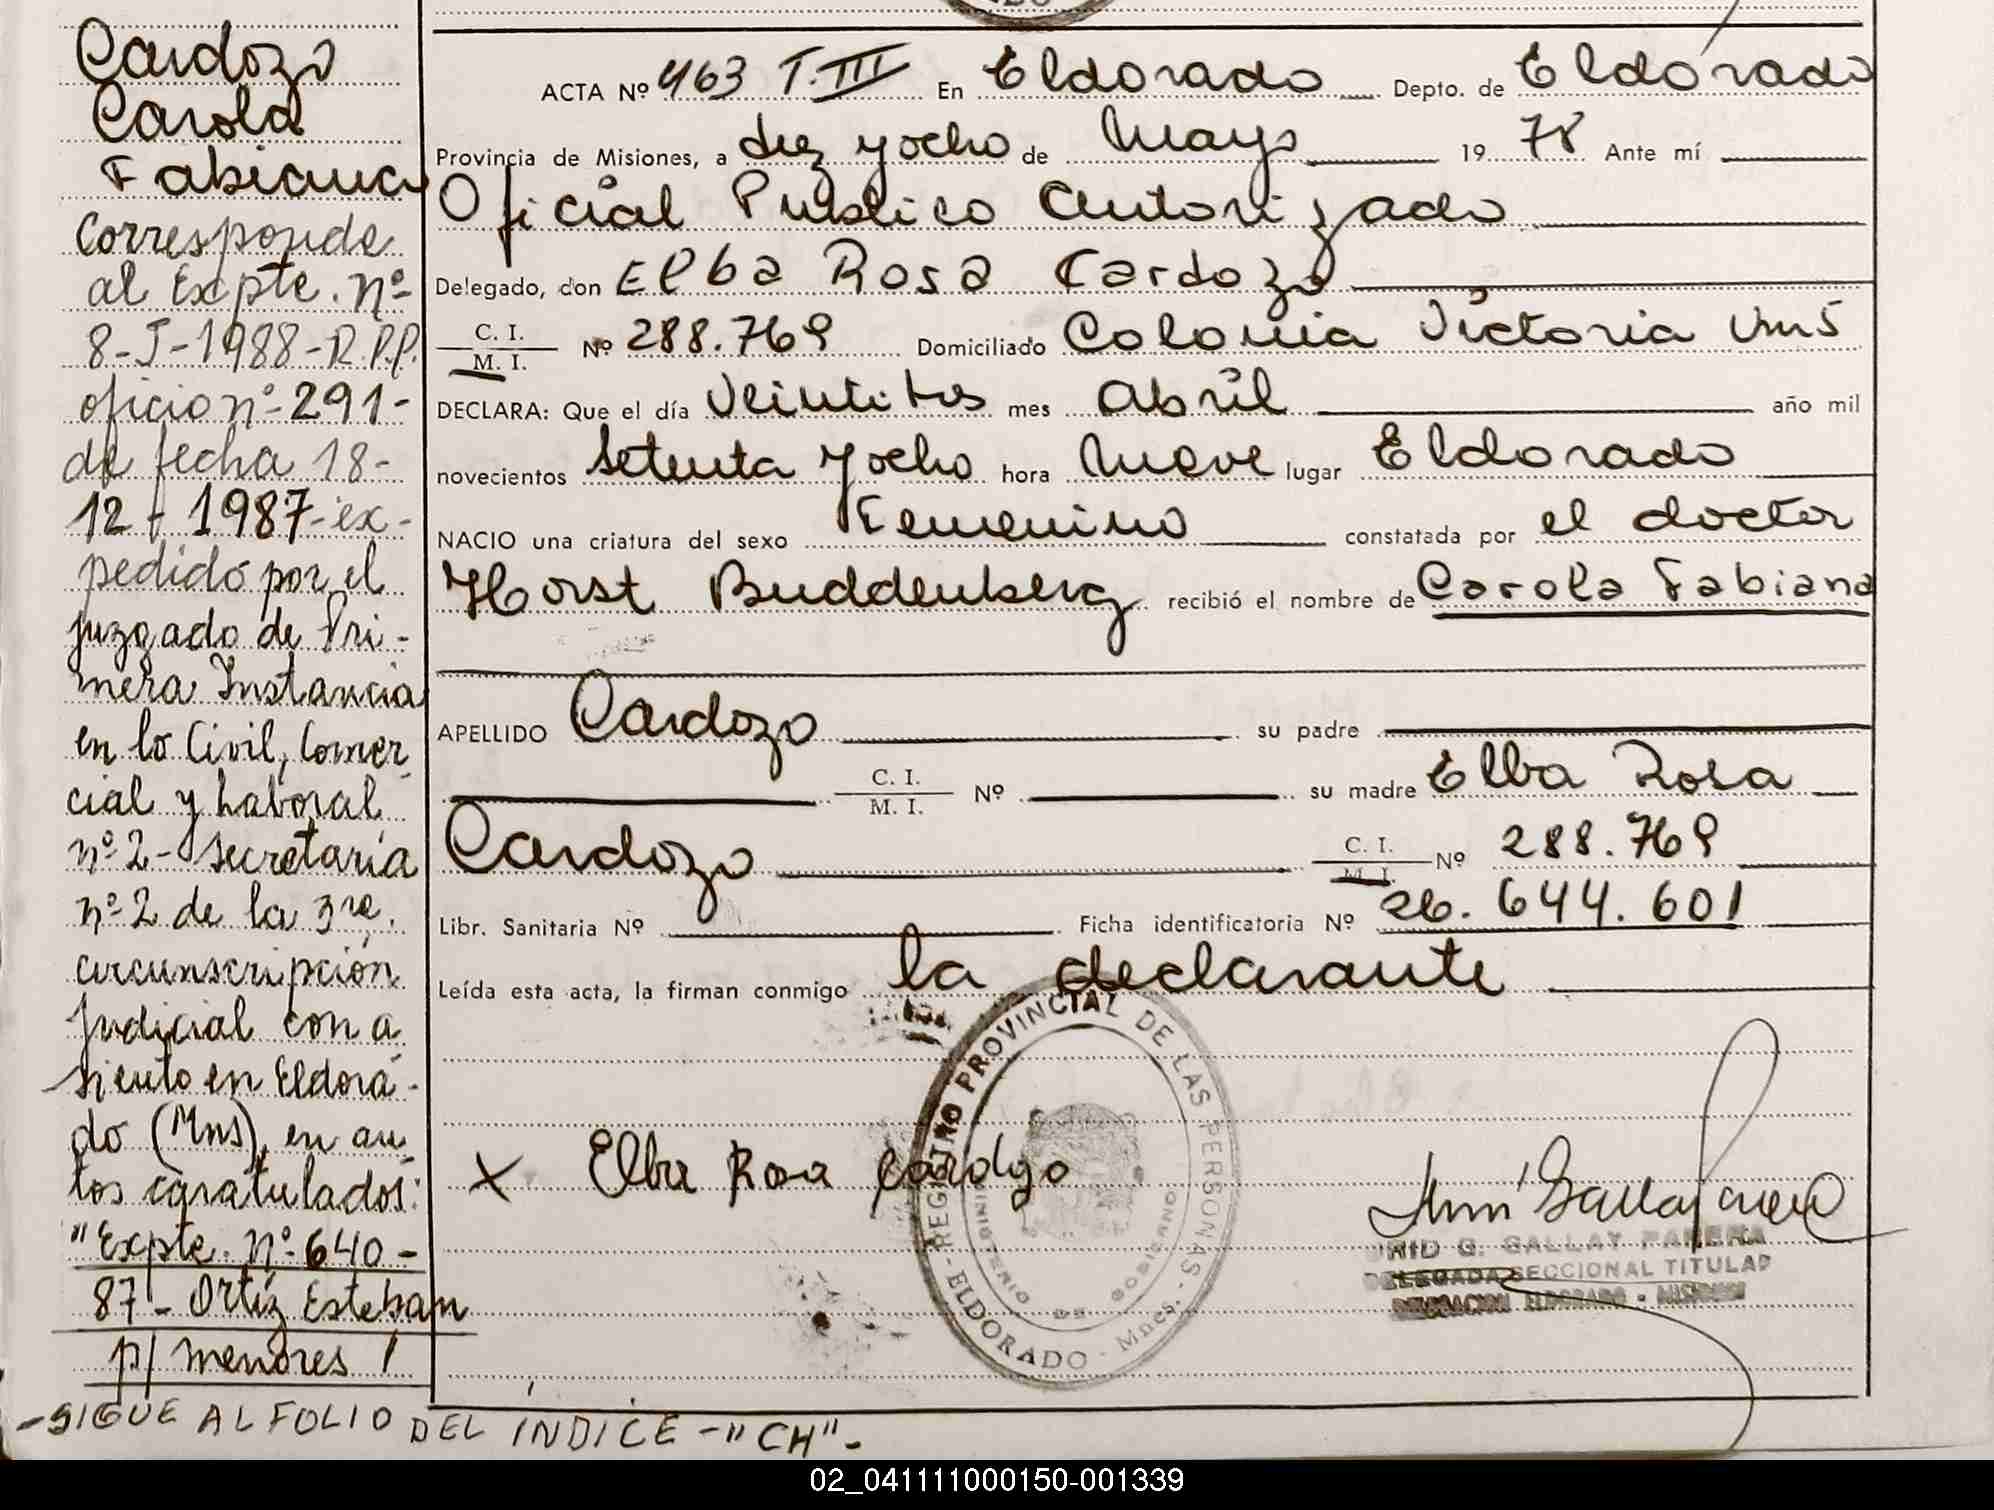 Cardozo
Carola
Fabiana
Corresponde
al Expte. nº
8-J-1988-R.P.P.
oficio nº-291-
de fecha 18-
12-1987-ex-
pedido por el
juzgado de Pri-
mera Instancia
en lo Civil, Comer
cial y Laboral
nº2-Secretaria
nº-2 de la 3ra.
circunscripción
Judicial con a
siento en Eldora-
do (Mns), en au
tos caratulados:
"Expte. nº-640-
87-Ortíz Esteban
p/ menores"
-SIGUE AL FOLIO DEL ÍNDICE -"CH"-
ACTA Nº 463 T.III En Eldorado Depto. de Eldorado
Provincia de Misiones, a diez y ocho de Mayo 1978 Ante mí
Oficial Publico Autorizado
Delegado, don Elba Rosa Cardozo
C. I. / M. I. Nº 288.769 Domiciliado Colonia Victoria Mns
DECLARA: Que el día Veintitres mes Abril año mil
novecientos Setenta y ocho hora Nueve lugar Eldorado
NACIO una criatura del sexo Femenino constatada por el doctor
Horst Buddenberg recibió el nombre de Carola Fabiana
APELLIDO Cardozo su padre
C. I. / M. I. Nº su madre Elba Rosa
Cardozo C. I. / M. I. Nº 288.769
Libr. Sanitaria Nº Ficha identificatoria Nº 26.644.601
Leída esta acta, la firman conmigo la declarante
REGISTRO PROVINCIAL DE LAS PERSONAS
MINISTERIO DE GOBIERNO
- ELDORADO - Mnes. -
X Elba Rosa Cardozo
G. GALLAY PARERA
DELEGADA SECCIONAL TITULAR
DELEGACION ELDORADO - MISIONES
02_041111000150-001339